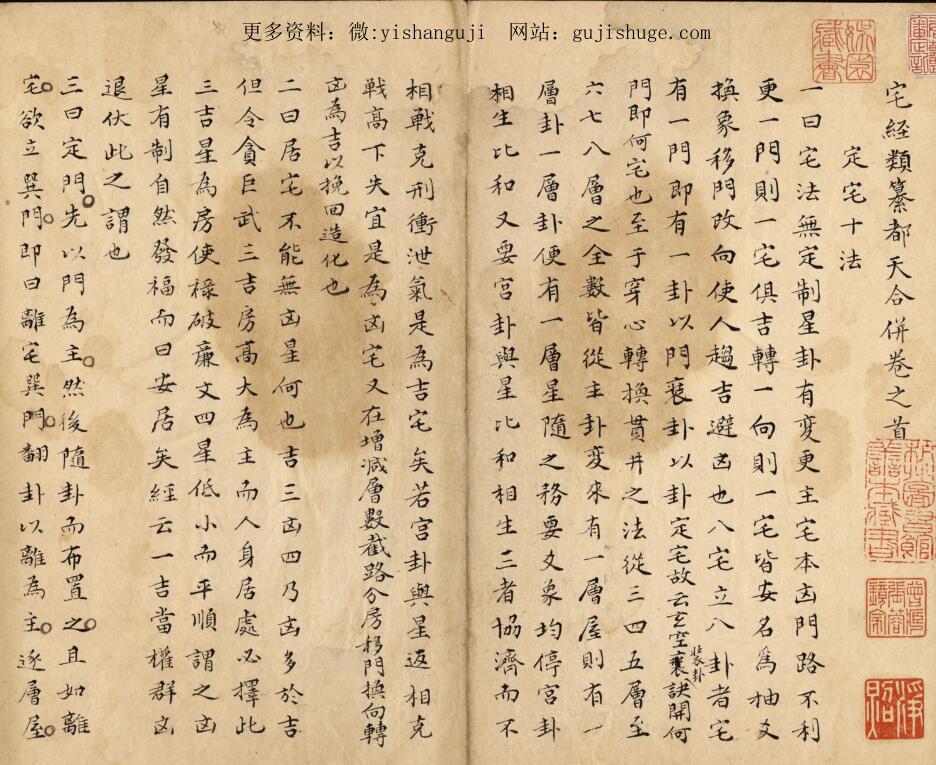 更多资料：微:yishanguji 网站：gujishuge.com
宅經類纂都天合併卷之首
定宅十法
一曰宅法無定制星卦有變更主宅本凶門路不利
更一門則一宅俱吉轉一向則一宅皆安名爲抽爻
換象移門改向使人趨吉避凶也八宅立八卦者宅
有一門即有一卦以門裝卦以卦定宅故云玄空裝卦訣開何
門即何宅也至于穿心轉換貫井之法從三四五層至
六七八層之全數皆從主卦變來有一層屋則有一
層卦一層卦便有一層星隨之務要爻象均停宮卦
相生比和又要宮卦與星比和相生三者協濟而不
相戰克刑衝泄氣是為吉宅矣若宮卦與星返相克
戰高下失宜是為凶宅又在增減層數截路分房移門換向轉
凶為吉以挽回造化也
二曰居宅不能無凶星何也吉三凶四乃凶多於吉
但令貪巨武三吉房高大為主而人身居處必擇此
三吉星為房使祿破廉文四星低小而平順謂之凶
星有制自然發福而曰安居矣經云一吉當權群凶
退伏此之謂也
三曰定門先以門為主然後隨卦而布置之且如離
宅欲立巽門即曰離宅巽門翻卦以離為主逐層屋